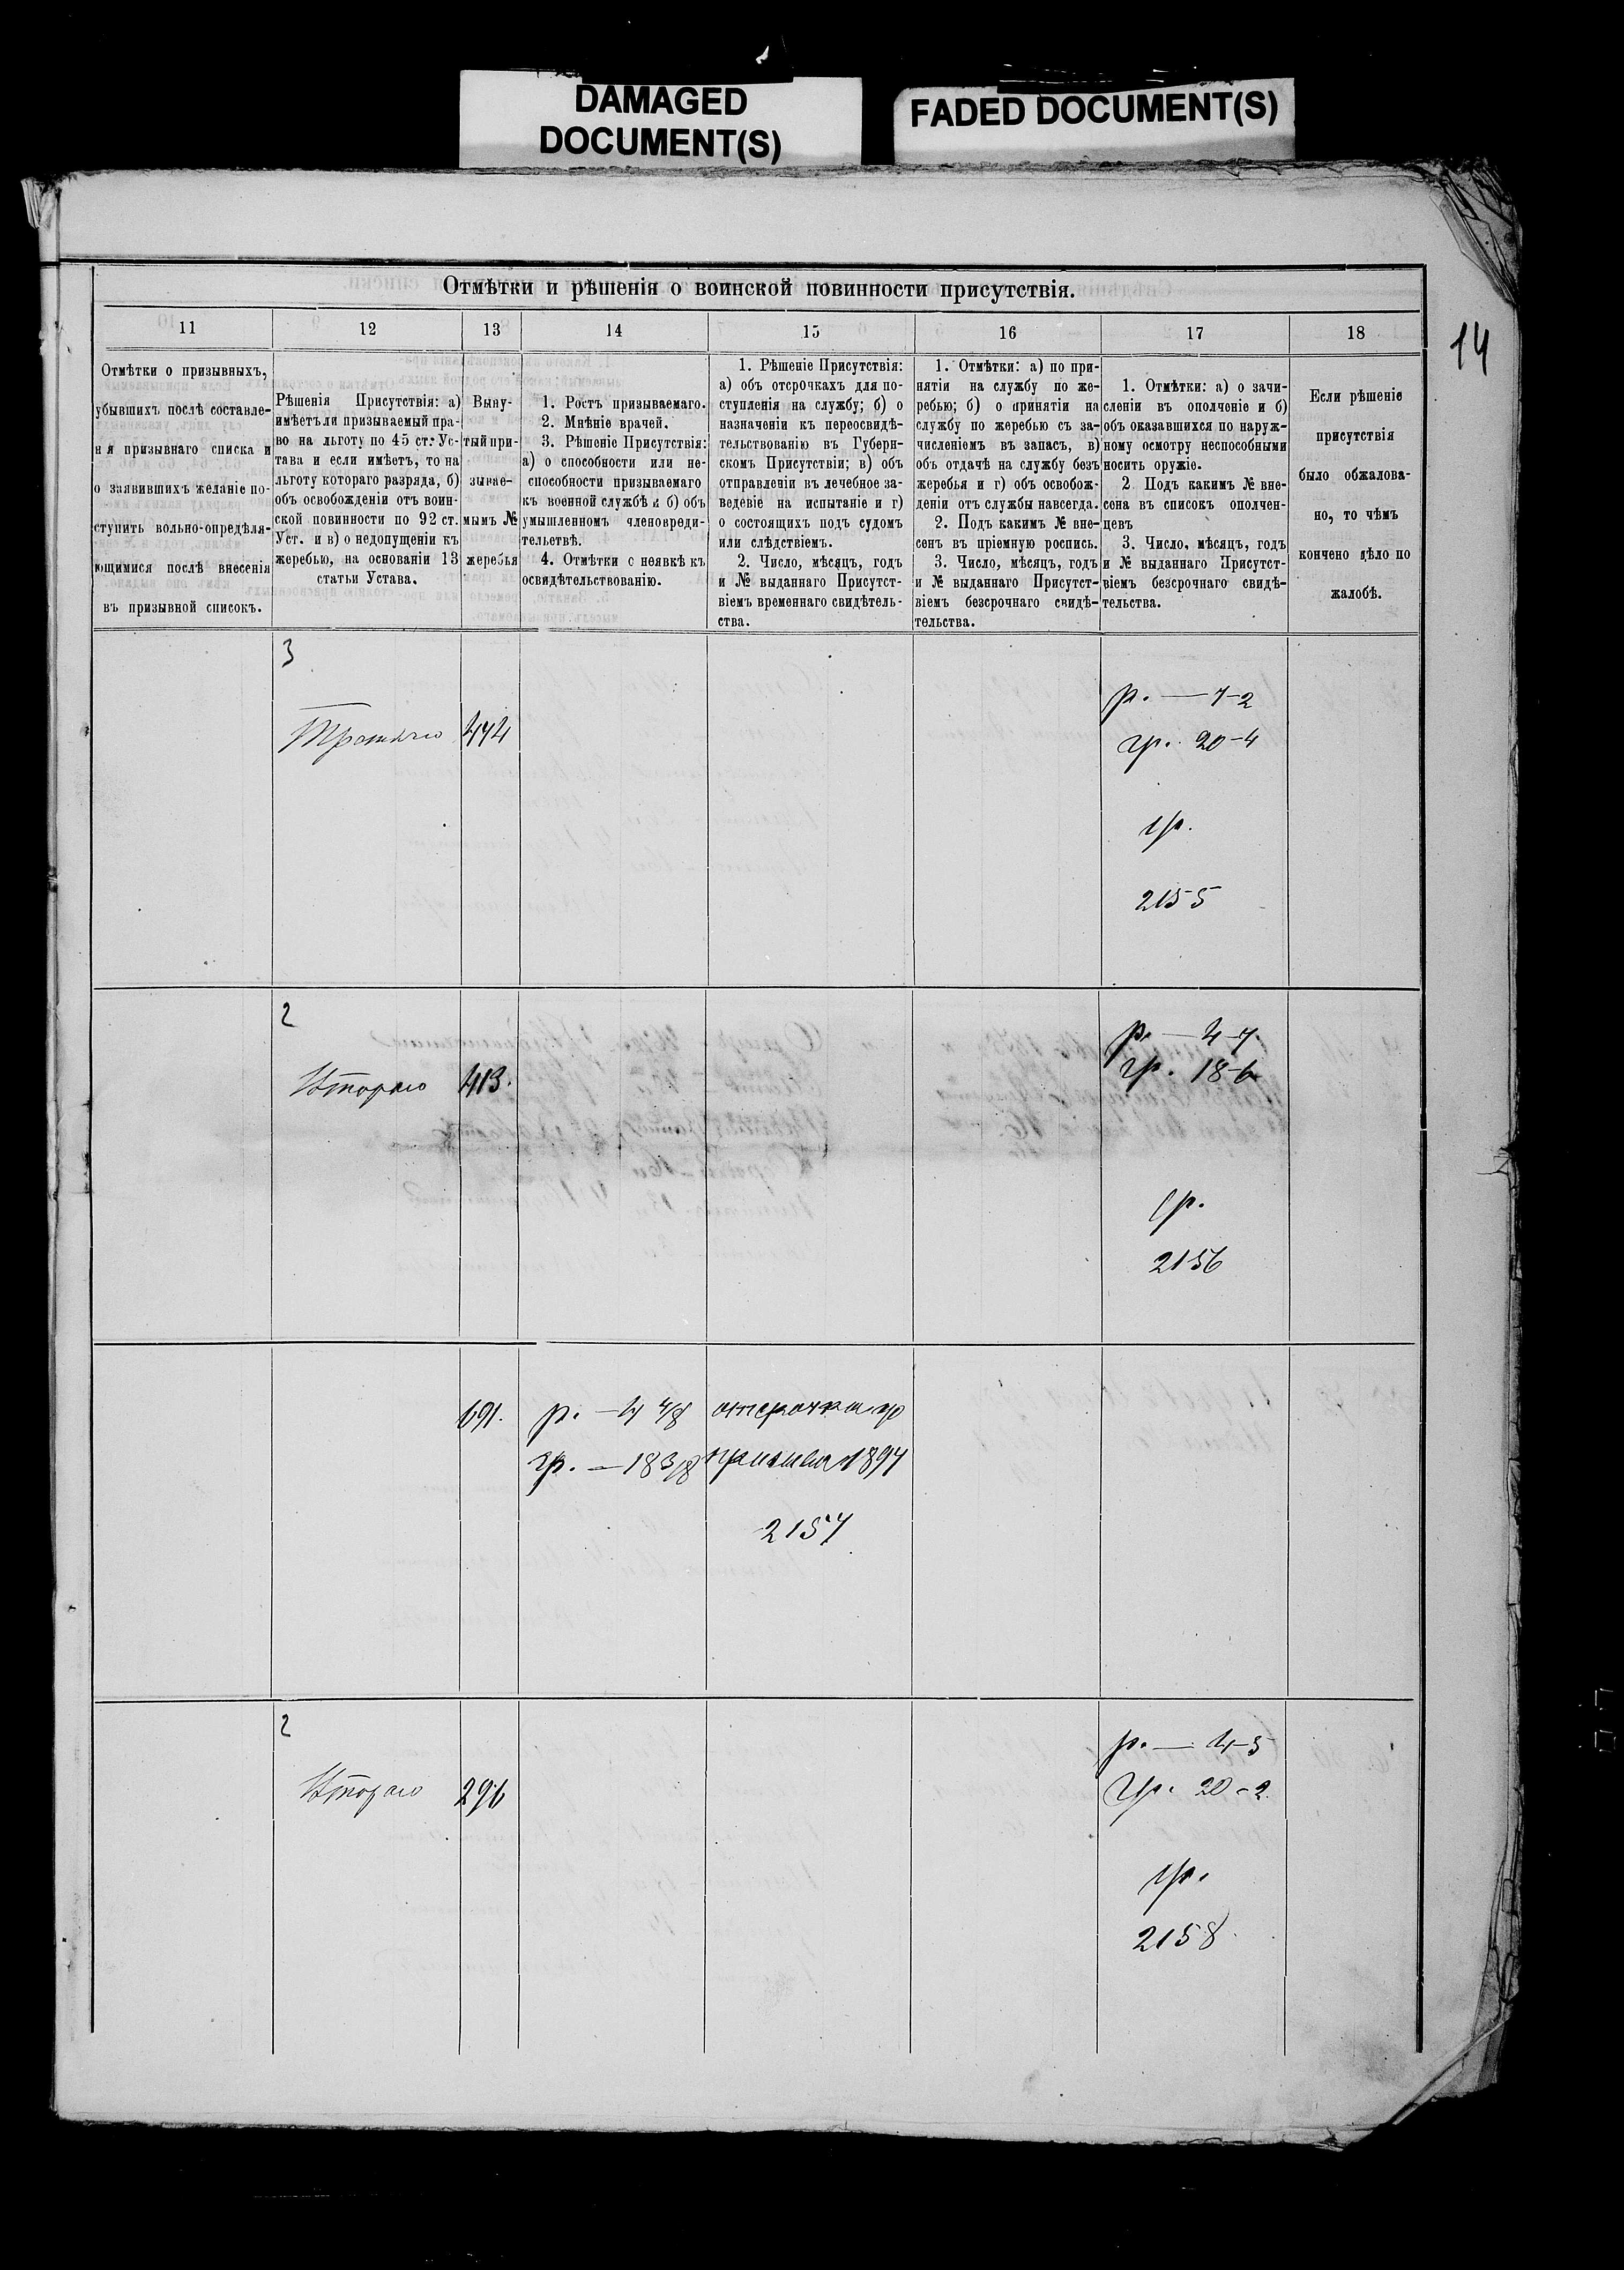 DAMAGED
DOCUMENT(S)
FADED DOCUMENT(S)
14
Отмѣтки и рѣшенія о воинской повинности присутствія.
11
Отмѣтки о призывныхъ,
убывшихъ послѣ составле-
нія призывнаго списка и
о заявившихъ желаніе по-
ступить вольно-опредѣля-
ющимися послѣ внесенія
въ призывной списокъ.
12
Рѣшенія Присутствія: а)
имѣетъ ли призываемый пра-
во на льготу по 45 ст. Ус-
тава и если имѣетъ, то на
льготу котораго разряда, б)
объ освобожденіи отъ воин-
ской повинности по 92 ст.
Уст. и в) о недопущеніи къ
жеребью, на основаніи 13
статьи Устава.
13
Выну-
тый при-
зывае-
мымъ №
жеребья
14
1. Ростъ призываемаго.
2. Мнѣніе врачей.
3. Рѣшеніе Присутствія:
а) о способности или не-
способности призываемаго
къ военной службѣ и б) объ
умышленномъ членовреди-
тельствѣ.
4. Отмѣтки о неявкѣ къ
освидѣтельствованію.
15
1. Рѣшеніе Присутствія:
а) объ отсрочкахъ для по-
ступленія на службу; б) о
назначеніи къ переосвидѣ-
тельствованію въ Губерн-
скомъ Присутствіи; в) объ
отправленіи въ лечебное за-
веденіе на испытаніе и г)
о состоящихъ подъ судомъ
или слѣдствіемъ.
2. Число, мѣсяцъ, годъ
и № выданнаго Присутст-
віемъ временнаго свидѣтель-
ства.
16
1. Отмѣтки: а) по при-
нятіи на службу по же-
ребью; б) о принятіи на
службу по жеребью съ за-
численіемъ въ запасъ, в)
объ отдачѣ на службу безъ
жеребья и г) объ освобож-
деніи отъ службы навсегда.
2. Подъ какимъ № вне-
сенъ въ пріемную роспись.
3. Число, мѣсяцъ, годъ
и № выданнаго Присутст-
віемъ безсрочнаго свидѣ-
тельства.
17
1. Отмѣтки: а) о зачи-
сленіи въ ополченіе и б)
объ оказавшихся по наруж-
ному осмотру неспособными
носить оружіе.
2 Подъ какимъ № вне-
сена въ списокъ ополчен-
цевъ
3. Число, мѣсяцъ, годъ
и № выданнаго Присутст-
віемъ безсрочнаго свидѣ-
тельства.
18
Если рѣшеніе
присутствія
было обжалова-
но, то чѣмъ
кончено дѣло по
жалобѣ.
3
Третьяго
474
р. — 7-2
гр. 20-4
2155
2
Втораго
413.
р. — 4-7
гр. 18-6
2156
691.
р. — 4 4/8
гр. — 18 3/8
отсрочка до
призыва 1897
2157
2
Втораго
296
р. — 4-5
гр. 20-2
2158